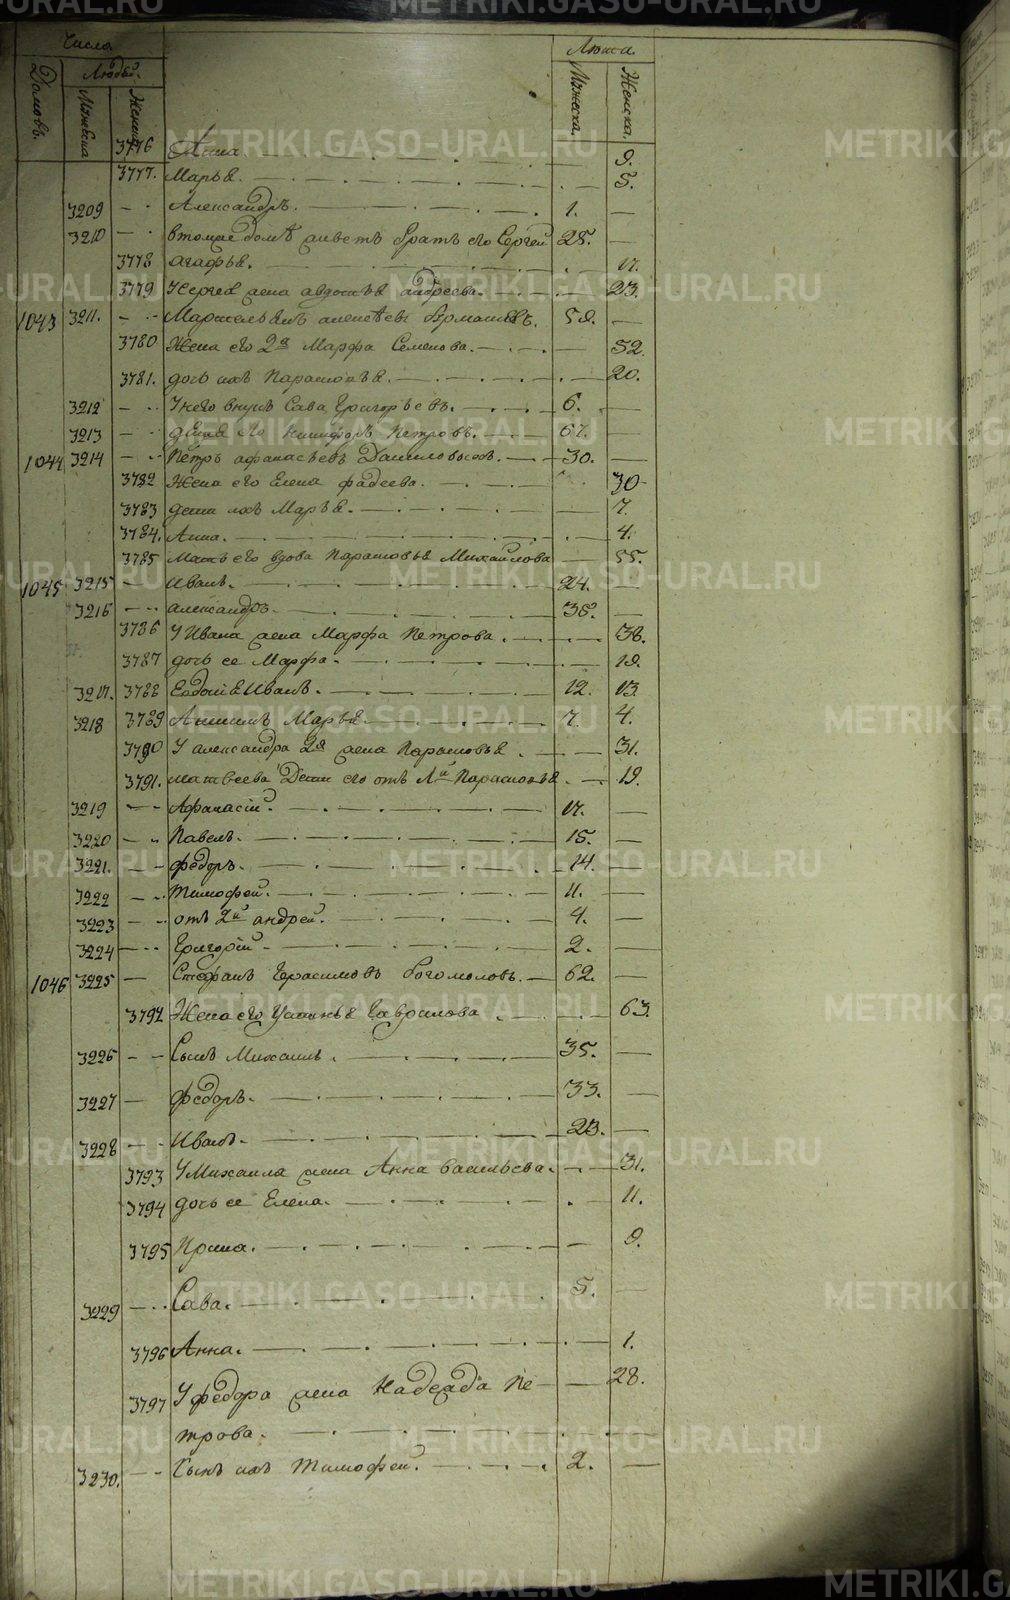 Числа
Людей.
Домовъ.
Мужеска
Женска
Лѣта.
Мужеска.
Женска.
3776 Анна 9.
3777. Марья 5.
3209 Александръ. 1.
3210 втомже домѣ живетъ братъ его Сергей 25.
3778 Агафья. 17.
3779 У Сергея жена авдотья андреева. 23.
1043 3211. алексѣевъ 59.
3780 Жена его 2я Марфа Семенова. 52.
3781. дочь ихъ Парасковья. 20.
3212 У него внукъ Сава Григорьевъ. 6.
3213 Никифоръ Петровъ. 67.
1044 3214 Петръ афанасьевъ 30.
3782 Жена его Елена фадеева. 30
3783 дети ихъ Марья. 7.
3784. Анна. 4.
3785 Мать его вдова Парасковья Михайлова 55.
1045 3215 Иванъ. 24.
3216 александръ. 38.
3786 У Ивана жена Марфа Петрова. 38.
3787 дочь ее Марфа. 19.
3217. 3788 Евдокия Иванъ. 12. 13.
3218 3789 Марья 7. 4.
3790 У александра 2я жена Парасковья 31.
3791. матвеева Дети его отъ 1й Парасковья 19.
3219 Афанасій. 17.
3220 Павелъ. 15.
3221. федоръ. 14.
3222 Тимофей. 11.
3223 отъ 2й андрей. 4.
3224 Григорій 2.
1046 3225 Стефанъ Герасимовъ Богомоловъ. 62.
3792 Жена его Устинья Гаврилова 63.
3226 Сынъ Михаилъ. 35.
3227 федоръ. 33.
3228 Иванъ. 23.
3793 У Михаила жена Анна васильева. 31.
3794 дочь ее Елена. 11.
3795 Ирина. 9.
3229 Сава. 5.
3796 Анна. 1.
3797 У федора жена Надежда Пе 28.
трова.
3230. Сынъ ихъ Тимофей. 2.
METRIKI.GASO-URAL.RU